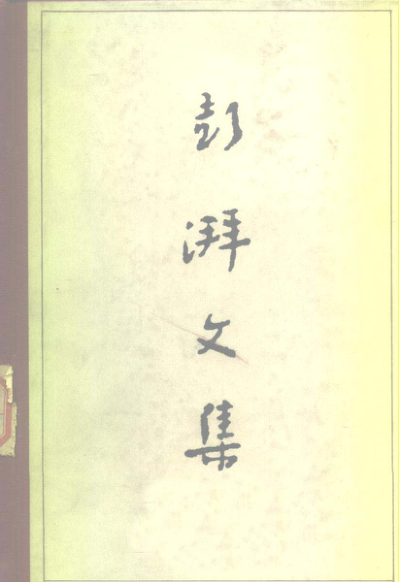 彭湃文集